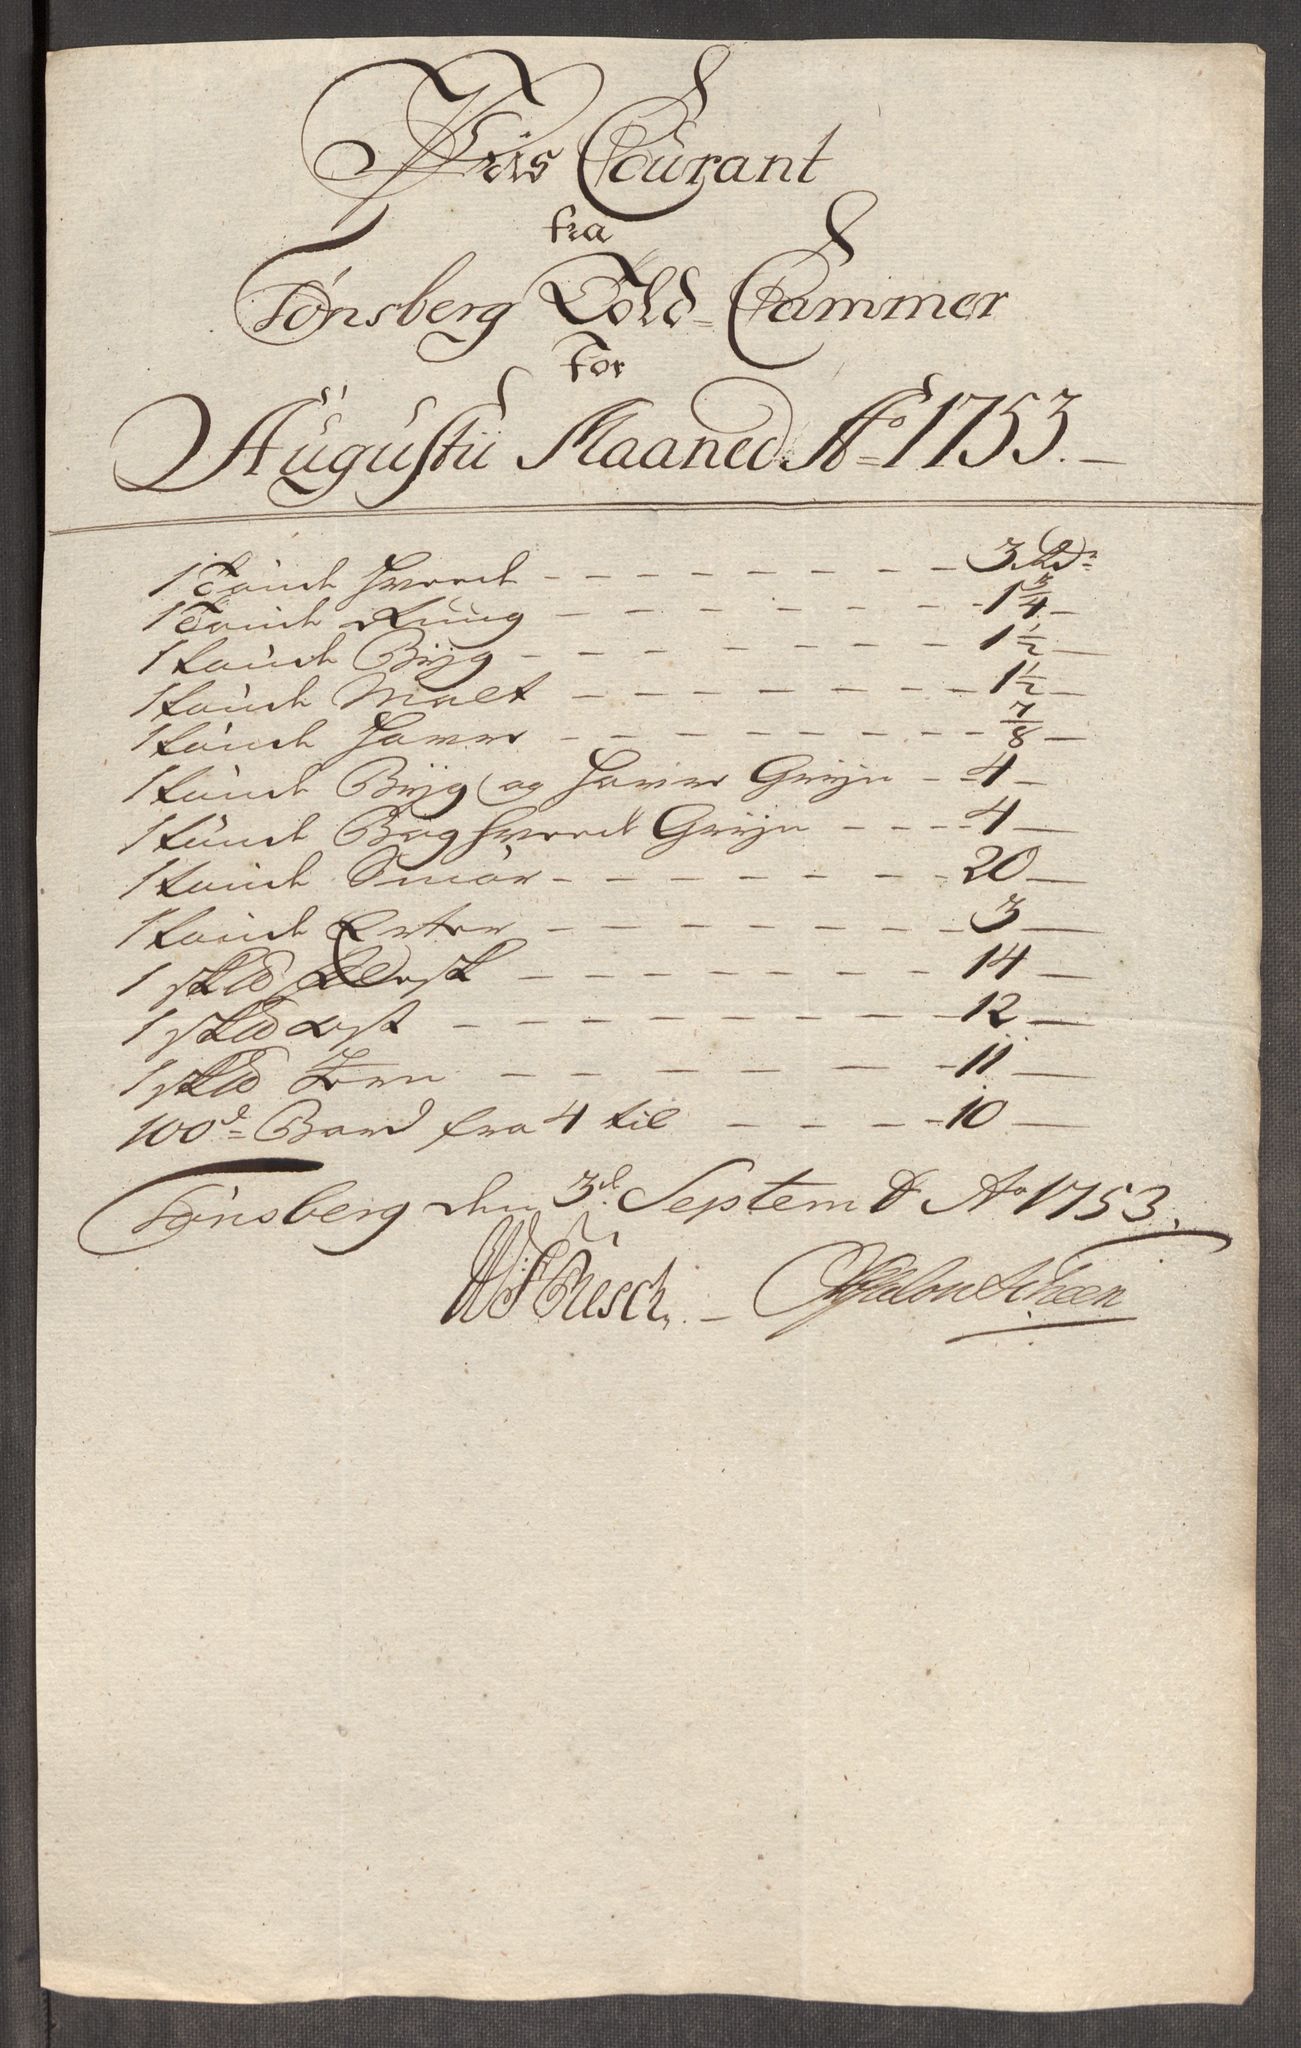 Priis Courant
fra
Tønsberg Told-Cammer
For
Augustii Maaned Ao 1753.
1 Tønde Hveede - - - 3 Rdr
1 Tønde Rüüg - - - 1 3/4
1 tønde Bÿg - - - 1 1/2
1 tønde Malt - - - 1 1/2
1 tønde Haver - - - 7/8
1 tønde Bÿg og Haver Grÿn - - 4
1 tønde Bog Hveede Grÿn - - - 4
1 tønde Smør - - - 20
1 tønde Erter - - - 3
1 sk℔d - - - 14
1 sk℔d ost - - - 12
1 sk℔d Jern - - - 11
100d Bord fra 4 til - - - 10
Tønsberg den 3d Septembr Ao 1753.
Resch